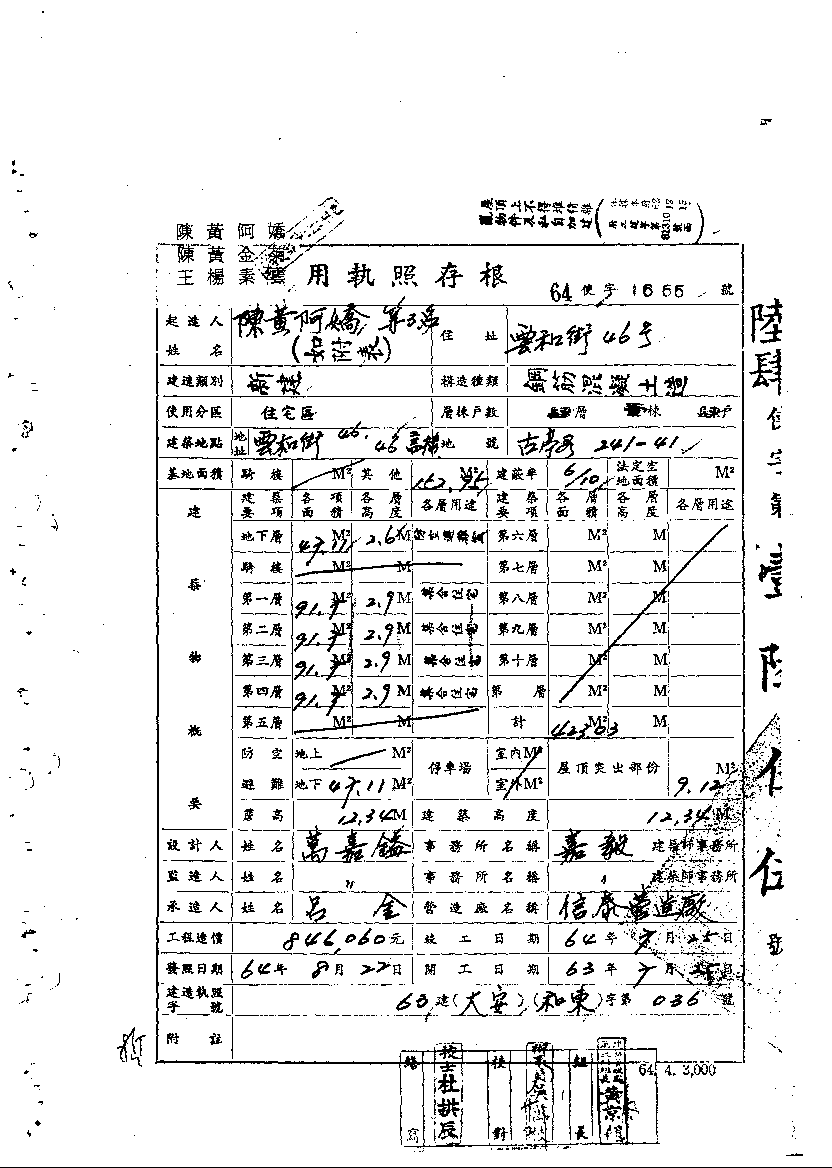 屋頂上不得堆積雜
物件及私自加建
陳黃阿嬌
陳黃金
王楊素雲
用執照存根
64使字1655號
起造人姓名 陳黃阿嬌 等3名(如附表) 住址 雲和街46号
建造類別 新建 構造種類 鋼筋混凝土造
使用分區 住宅區 層棟戶數 層 棟 戶
建築地點 地址 雲和街46. 地號 古亭 241-41
基地面積 騎樓 M² 其他 152.95 M² 建蔽率 6/10 法定空地面積 M²
建築物概要
建築要項 各項面積 各層高度 各層用途 建築要項 各層面積 各層高度 各層用途
地下層 47.11 M² 2.6 M 第六層 M² M
騎樓 M² M 第七層 M² M
第一層 91.7 M² 2.9 M 集合住宅 第八層 M² M
第二層 91.7 M² 2.9 M 集合住宅 第九層 M² M
第三層 91.7 M² 2.9 M 集合住宅 第十層 M² M
第四層 91.7 M² 2.9 M 集合住宅 第 層 M² M
第五層 M² M 計 423.03 M² M
防空避難 地上 M² 地下 47.11 M² 停車場 室內 M² 室外 M² 屋頂突出部份 9.12 M²
簷高 12.34 M 建築高度 12.34 M
設計人 姓名 萬嘉鎰 事務所名稱 嘉毅 建築師事務所
監造人 姓名 〃 事務所名稱 〃 建築師事務所
承造人 姓名 呂金 營造廠名稱 信泰營造廠
工程造價 846,060元 竣工日期 64年7月25日
發照日期 64年8月22日 開工日期 63年7月 日
建造執照字號 63建(大安)(和東)字第036號
附註
64. 4. 3,000
繕寫 技士杜拱辰 校對 組長 黃京
陸肆使字第壹陸伍伍號